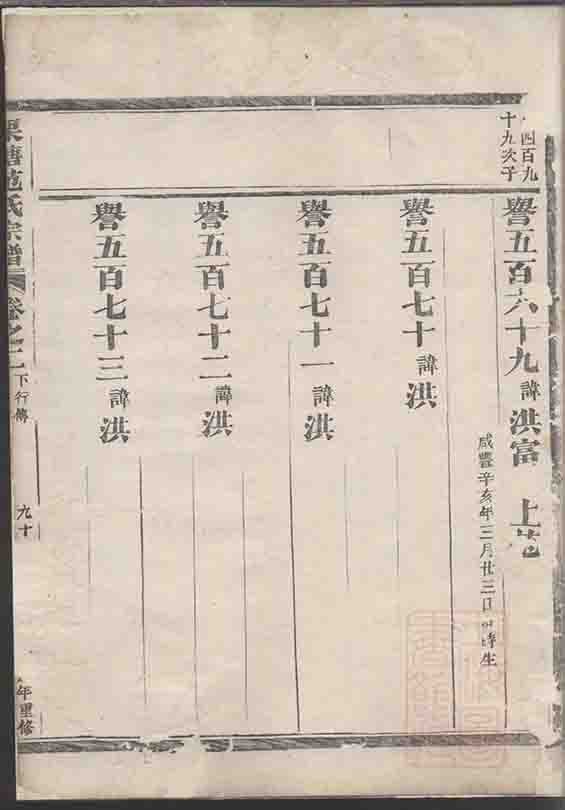 四百九
十九次子
譽五百六十九諱洪富
咸豐辛亥年三月廿三日時生
譽五百七十諱洪
譽五百七十一諱洪
譽五百七十二諱洪
譽五百七十三諱洪
氏宗譜 卷之二 下行傳 九十 年重修